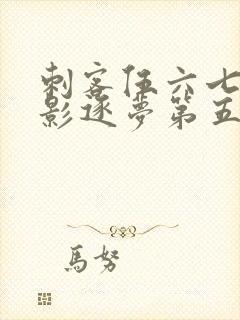 刺客伍六七
影逐夢第五
馬努